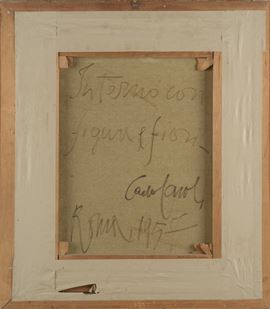 Interno con
figura e fiori
Carlo Levi
Roma, 195